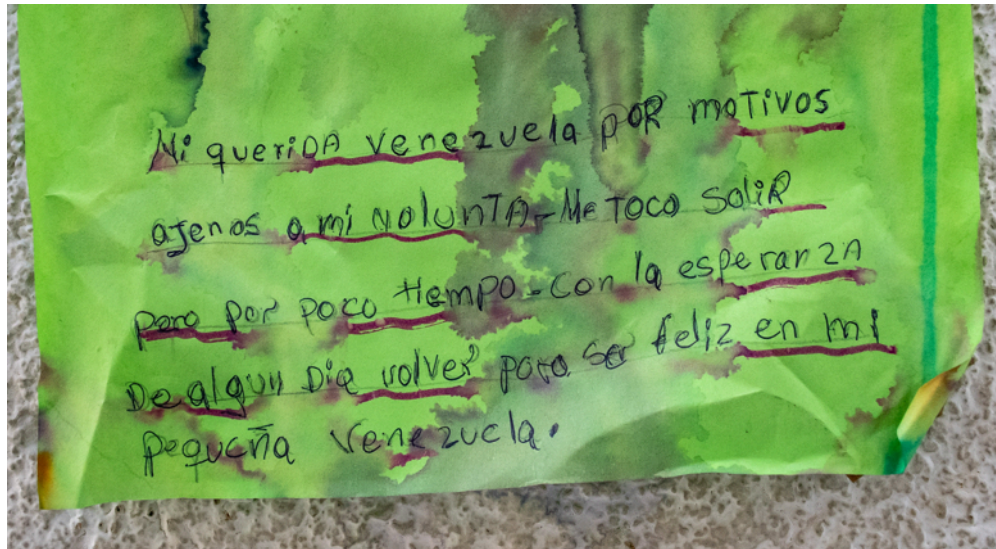 Mi queriDA venezuela pOR moTivos
ajenos a mi volunTA-Me Toco SaliR
pero por poco tiempo-con la esperanzA
De algun Dia volver para ser feliz en mi
pequeña Venezuela.